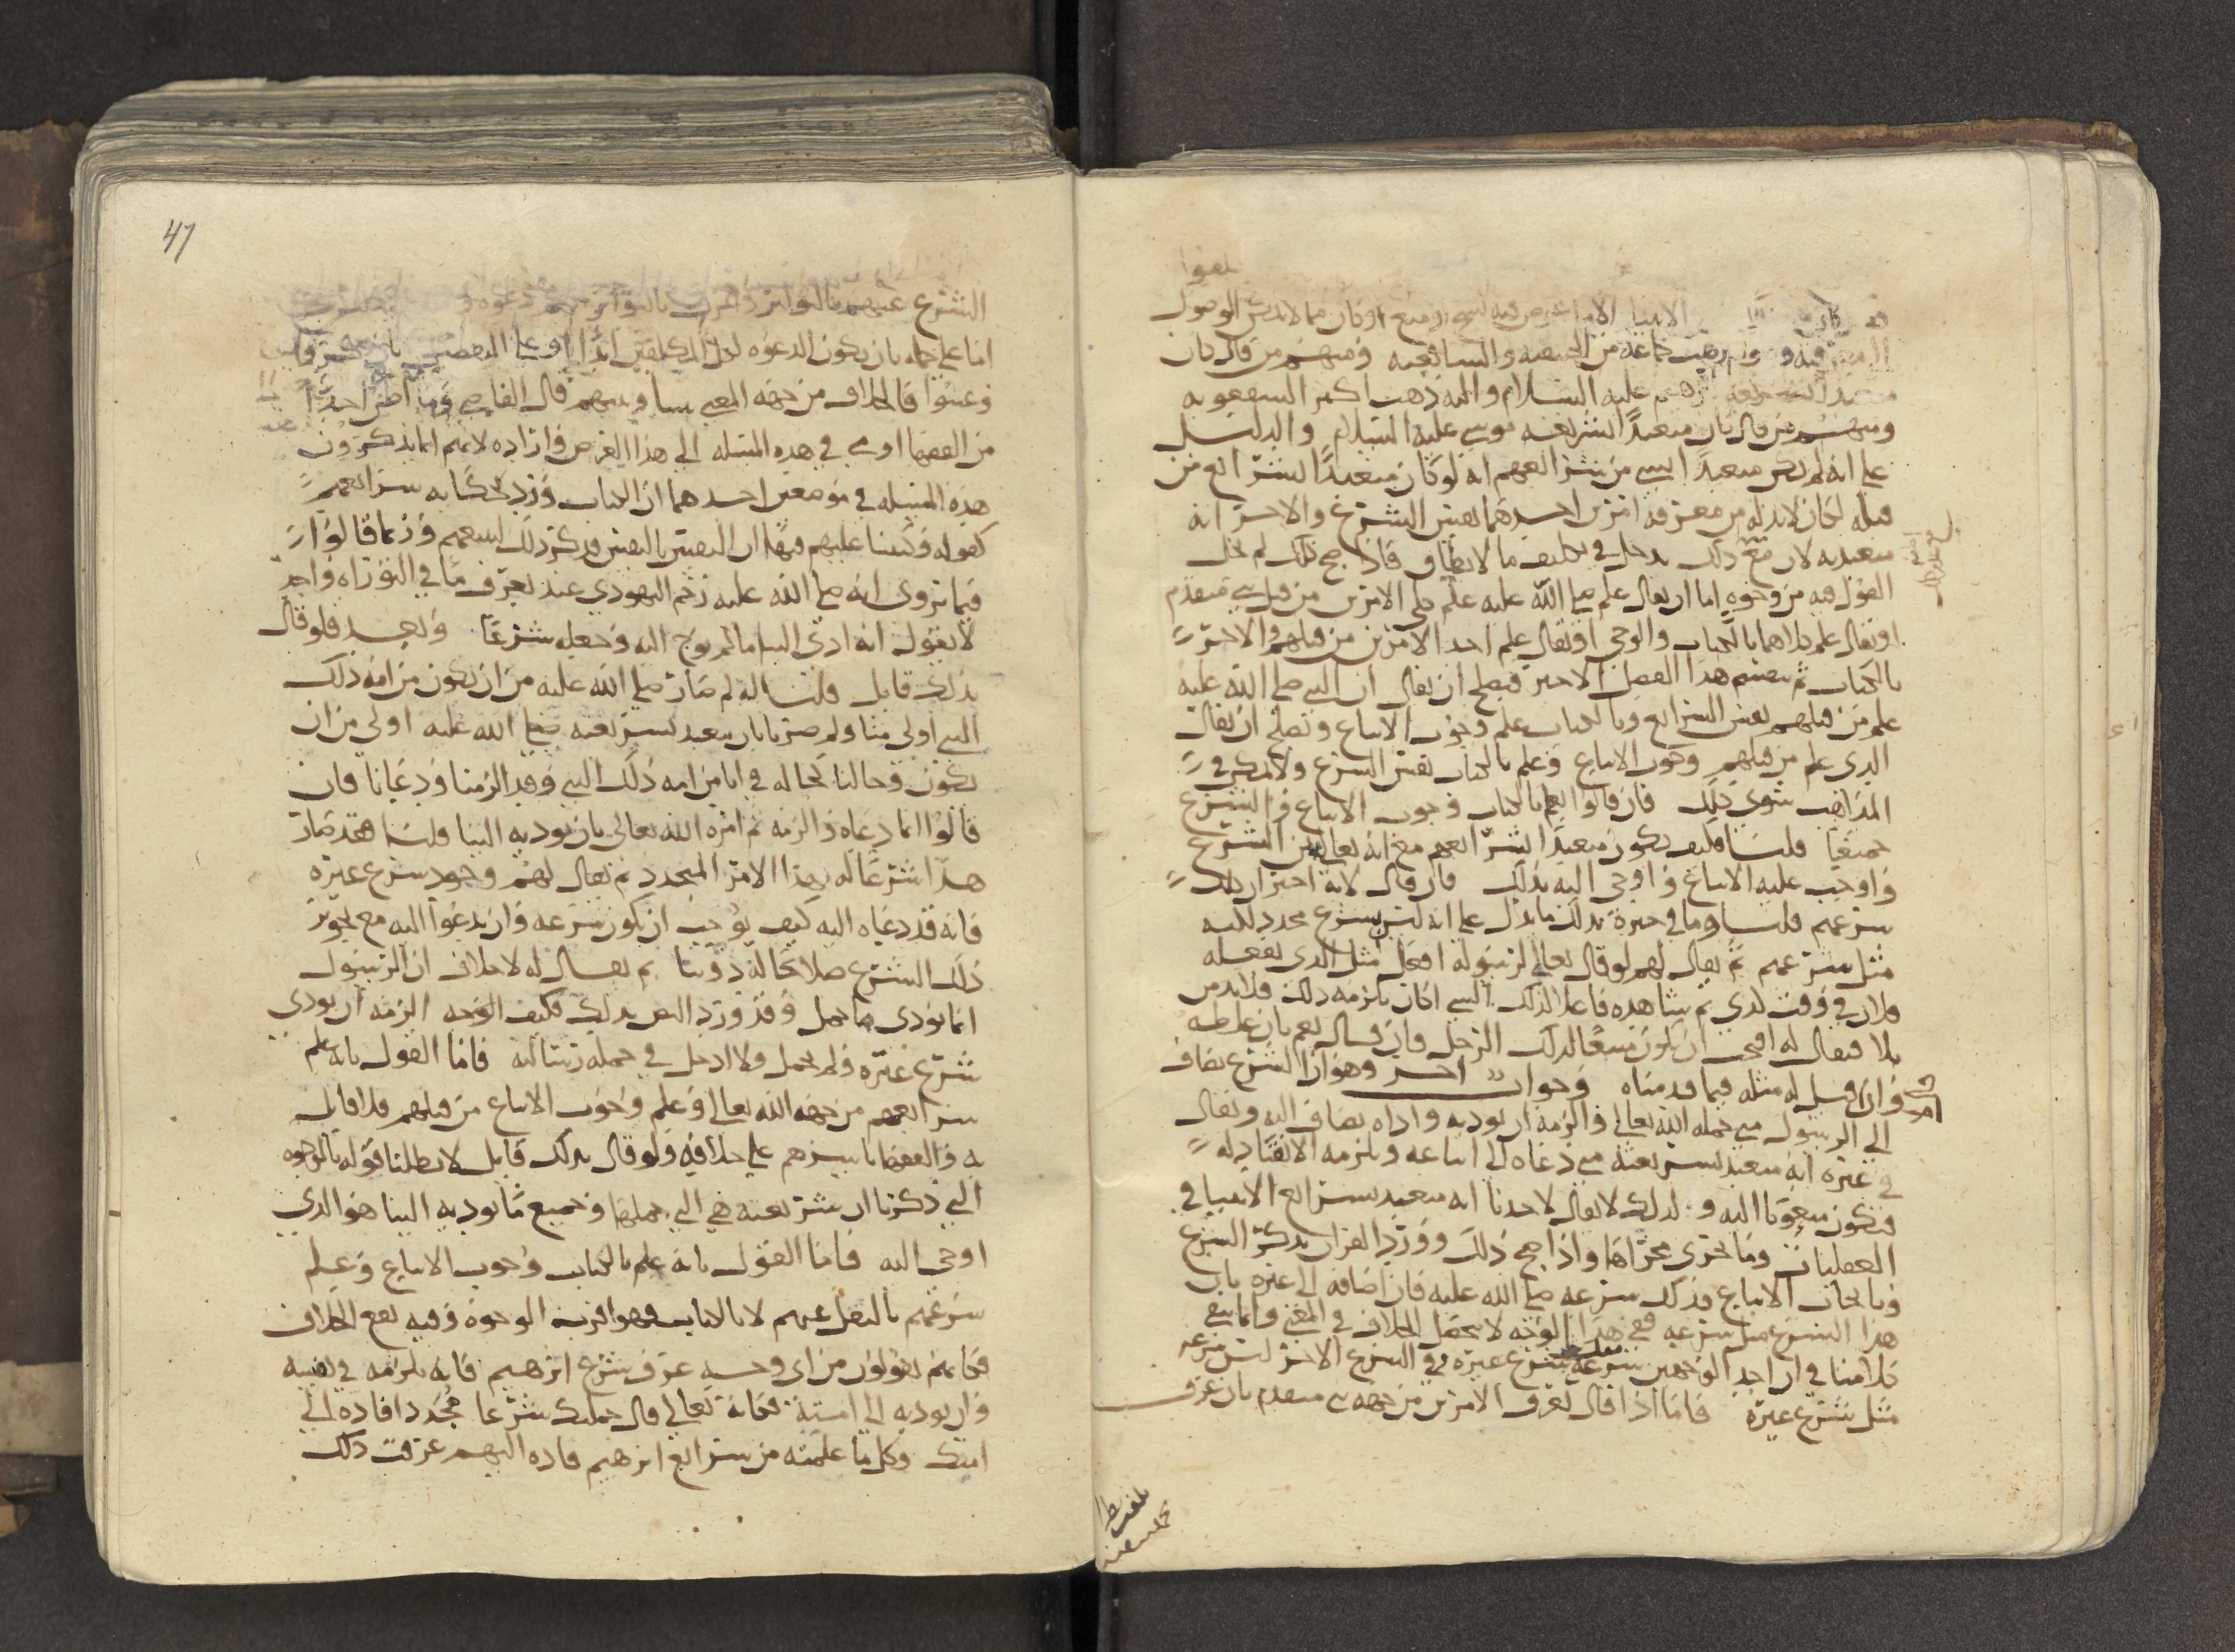 الانبيا الا ما عرض فيه نسخ او منع او كان مما لا يمكن الوصول
جماعه من الحنفيه والشافعيه ومنهم من قال كان
ابرهيم عليه السلام واليه ذهب اكثر الشفعويه
ومنهم من قال كان متعبدًا بشريعة موسى عليه السلام والدليل
على انه لم يكن متعبدًا بشي من شرايعهم انه لو كان متعبدًا بشرايع من
قبله لكان لا بد له من معرفه امرين احدهما نفس الشرع والاخر انه
متعبد به لان مع ذلك يدخل في تكليف ما لا يطاق فاذا صح ذلك لم يخل
القول فيه من وجوه اما ان يقال علم صلى الله عليه علم كلى الامرين من قبل نبي متقدم
او يقال علم كلاهما بالكتاب والوحي او يقال علم احد الامرين من قبلهم والاخر
بالكتاب ثم ينقسم هذا الفصل الاخير فيصلح ان يقال ان النبي صلى الله عليه
علم من قبلهم نفس الشرايع وبالكتاب علم وجوب الاتباع ويصلح ان يقال
الذي علم من قبلهم وجوب الاتباع وعلم بالكتاب نفس الشرع ولا يمكن في
المذاهب سوى ذلك فان قالوا يعلم بالكتاب وجوب الاتباع والشرع
جميعًا قلنا فكيف يكون متعبدًا بشرايعهم مع انه تعالى بين الشرع
واوجب عليه الاتباع واوحى اليه بذلك فان قال لانه اخبر ان ذلك
شرعهم قلنا وما في خبره بذلك ما يدل على انه ليس بشرع مجدد لكنه
مثل شرعهم ثم يقال لهم لو قال تعالى لرسوله افعل مثل الذي يفعله
فلان في وقت لذي لم يشاهده فاعلا لذلك الشي اكان يلزمه ذلك فلا بد من
بلا فيقال له افيجب ان يكون متبعًا لذلك الرجل فان قال نعم بان غلطه
وان قيل له مثله فيما قدمناه وجواب اخر وهو ان الشرع يضاف
الى الرسول متى حمله الله تعالى والزمه ان يوديه واداه يضاف اليه ويقال
في غيره انه متعبد بشريعته متى دعاه الى اتباعه ويلزمه الانقياد له
فيكون مبعوثا اليه ولذلك لا يقال لاحدنا انه متعبد بشرايع الانبيا في
العقليات وما يجري مجراها واذا صح ذلك وورد القران بذكر الشرع
وبايجاب الاتباع فذلك شرعه صلى الله عليه فان اضافه الى غيره بان
هذا الشرع مثل شرعه فعلى هذا الوجه لا يحصل الخلاف في المعنى وانما يبقى
كلامنا في ان احد الوجهين شرعه بشرع غيره وفي الشرع الاخر ليس شرعه
مثل شرع غيره فاما اذا قال تعرف الامرين من جهه نبي متقدم بان عرف
47
الشرع عنهم بالتواتر وعرف بالتواتر عنهم دعوه
اما على جمله بان يكون الدعوه لكل المكلفين ابدًا او على التفصيل
وعينوا فالخلاف من جهه المعنى بيننا وبينهم قال القاضي وما اظن احدًا
من الفقها اومى في هذه المسله الى هذا الغرض واراده لانهم انما يذكرون
هذه المسله في موضعين احدهما ان الكتاب ورد بحكايه شرايعهم
كقوله وكتبنا عليهم فيها ان النفس بالنفس فذكر ذلك ليتبعهم وربما قالوا
فيما يروى انه صلى الله عليه رجم اليهودي عند تعرف ما في التوراه واحد
لا يقول انه ادى الينا ما لم يوح اليه وجعله شرعًا وبعد فلو قال
بذلك قايل قلنا له لم صار صلى الله عليه من ان يكون من امه ذلك
النبي اولى منا ولم صرنا بان يتعبد بشريعته صلى الله عليه اولى من ان
يكون وحالنا كحاله في انا من امه ذلك النبي وقد الزمنا ودعانا فان
قالوا انما دعاه والزمه ثم امره الله تعالى بان يوديه الينا قلنا فقد صار
هذا شرعًا له بهذا الامر المجدد ثم يقال لهم وجود شرع غيره
فانه قد دعاه اليه كيف يوجب ان يكون شرعه وان يدعوا اليه مع تجويز
ذلك الشرع صلاحًا له دوننا ثم يقال له لا خلاف ان الرسول
انما يودي ما حمل وقد ورد النص بذلك فكيف الوجه الزمه ان يودي
شرع غيره ولم يحمل ولا ادخل في جمله رسالته فاما القول بانه علم
شرايعهم من جهه الله تعالى وعلم وجوب الاتباع من قبلهم فلا قايل
به والفقها باسرهم على خلافه ولو قال بذلك قايل لابطلنا قوله بالوجوه
التي ذكرنا ان شريعته هي التي حملها وجميع ما يوديه الينا هو الذي
اوحى اليه فاما القول بانه علم بالكتاب وجوب الاتباع وعلم
شرعهم بالنقل عنهم لا بالكتاب فهو اقرب الوجوه وفيه يقع الخلاف
فكانهم يقولون من اى وجه عرف شرع ابرهيم فانه يلزمه في نفسه
وان يوديه الى امته فكانه تعالى قال حملتك شرعا مجددا فاده الى
امتك وكل ما علمته من شرايع ابرهيم فاده اليهم عرفت ذلك